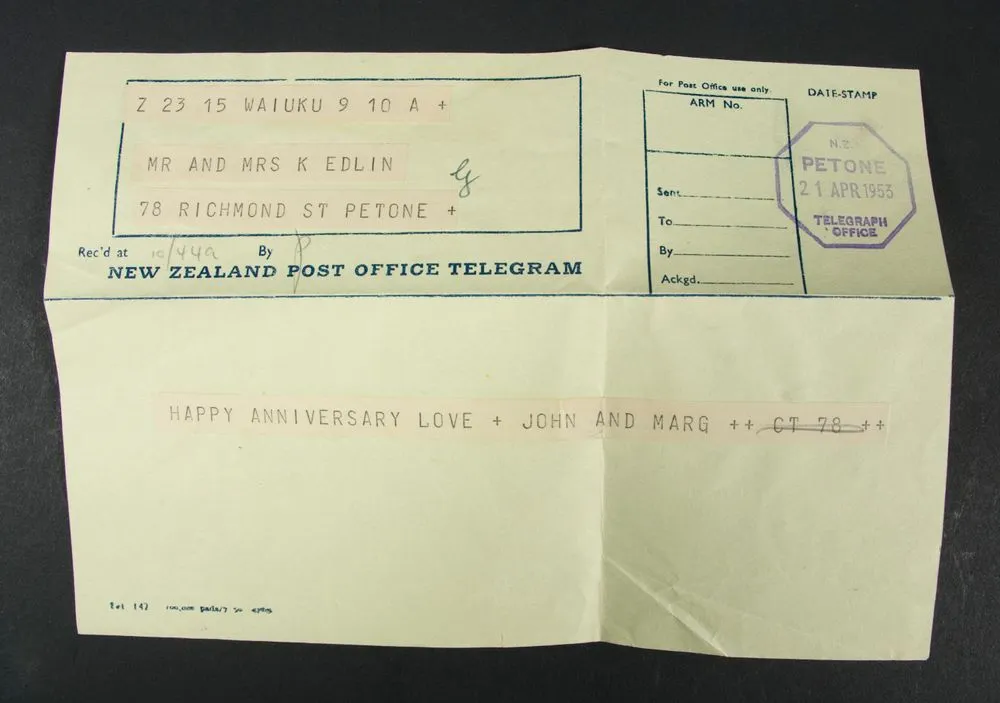 Z 23 15 WAIUKU 9 10 A +
MR AND MRS K EDLIN
78 RICHMOND ST PETONE +
Rec'd at 10/44a By
NEW ZEALAND POST OFFICE TELEGRAM
For Post Office use only.
ARM No.
Sent
To
By
Ackgd.
DATE-STAMP
N.Z.
PETONE
21 APR 1953
TELEGRAPH
OFFICE
HAPPY ANNIVERSARY LOVE + JOHN AND MARG ++ CT 78 ++
Tel 142 100,000 pads/7 50